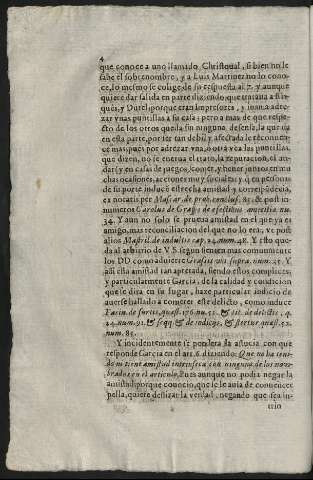 4
que conoce a uno llamado Christoual, si bien no le
sabe el sobrenombre, y a Luis Martinez no lo cono-
ce, lo mesmo se colige de su respuesta al 7. y aunque
quiere dar salida en parte diziendo, que trataua a Mar-
quès, y Durel, porque eran Impresores, y iuan a adre-
zar vnas puntillas a su casa; pero a mas de que respe-
cto de los otros queda sin ninguno defensa, la que da
en esta parte, por ser tan debil y afectada le reconuen-
ce mas, pues por adrezar vna, ò otra vez las puntillas,
que dizen, no se entera el trato, la reputacion, el an-
dar, y en casas de juegos, comer, y henar juntos en mu-
chas ocasiones, acciones muy sociales, y q en personas
de su porte induce estrecha amistad y correspõdēcia,
ex notatis per Mascar. de prob. conclus. 85. & post in-
numeros Carolus de Grassis de efectibus amicitiæ nu.
34. Y aun no solo se prueua amistad en el que ya es
amigo, mas reconciliacion del que no lo era, vt post
alios Mastril. de indultis cap. 24. num. 48. Y esto que-
da al arbitrio de V. S. segun sienten mas comunmente
los DD. como aduierte Grassis vbi supra. num. 25. Y
assi esta amistad tan apretada, siendo estos complices,
y particularmente Garcia, de la calidad y condicion
que se dirà en su lugar, haze particular indicio de
auerse hallado a cometer este delicto, como induce
Farin. de furtis, quæst. 176. nu. 51. & tit. de delictis, q.
24. num. 91. & seqq. & de indicijs, & tortur. quæst. 52.
num. 85.
Y incidentemente se pondera la astucia con que
responde Garcia en el art. 6. diziendo: Que no ha teni-
do ni tiene amistad intrinseca con ninguno de los nom-
brados en el articulo. Pues aunque no podia negar la
amistad, porque conociò, que se le auia de conuencer
pella, quiere deslizar la verdad, negando que sea in-
trin